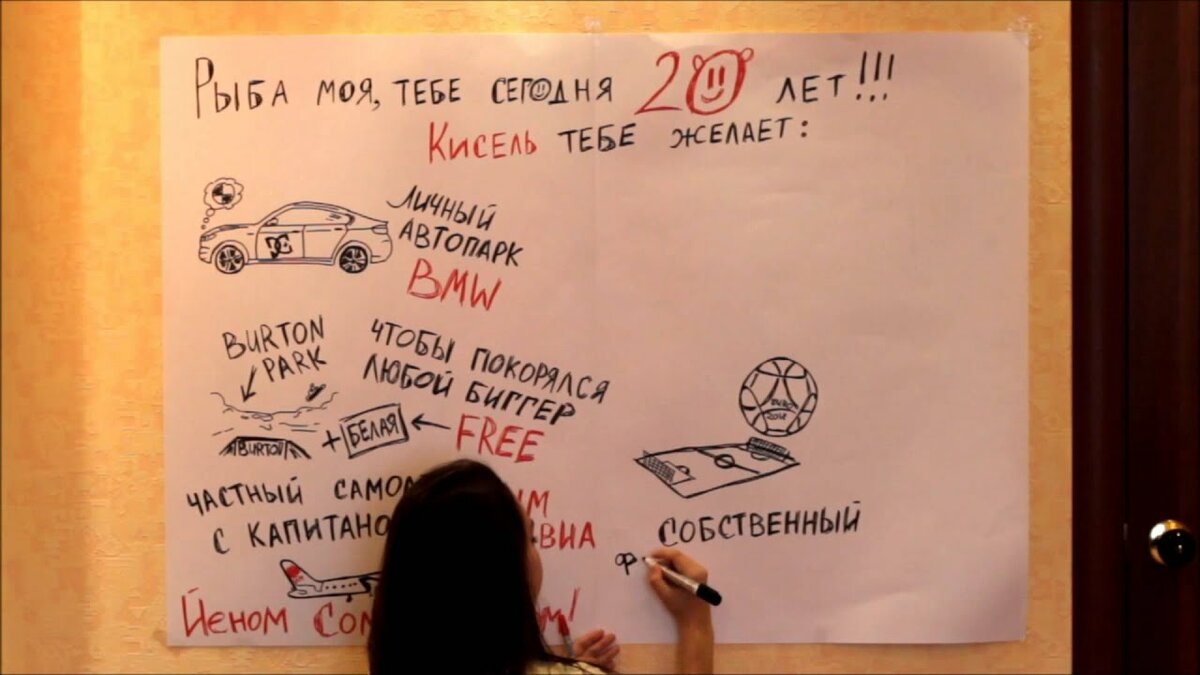 Рыба моя, тебе сегодня 20 лет!!!
Кисель тебе желает:
личный
автопарк
BMW
BURTON
PARK
BURTON
+ БЕЛАЯ
чтобы покорялся
любой биггер
FREE
частный
с капитано
собственный
ф
Йеном